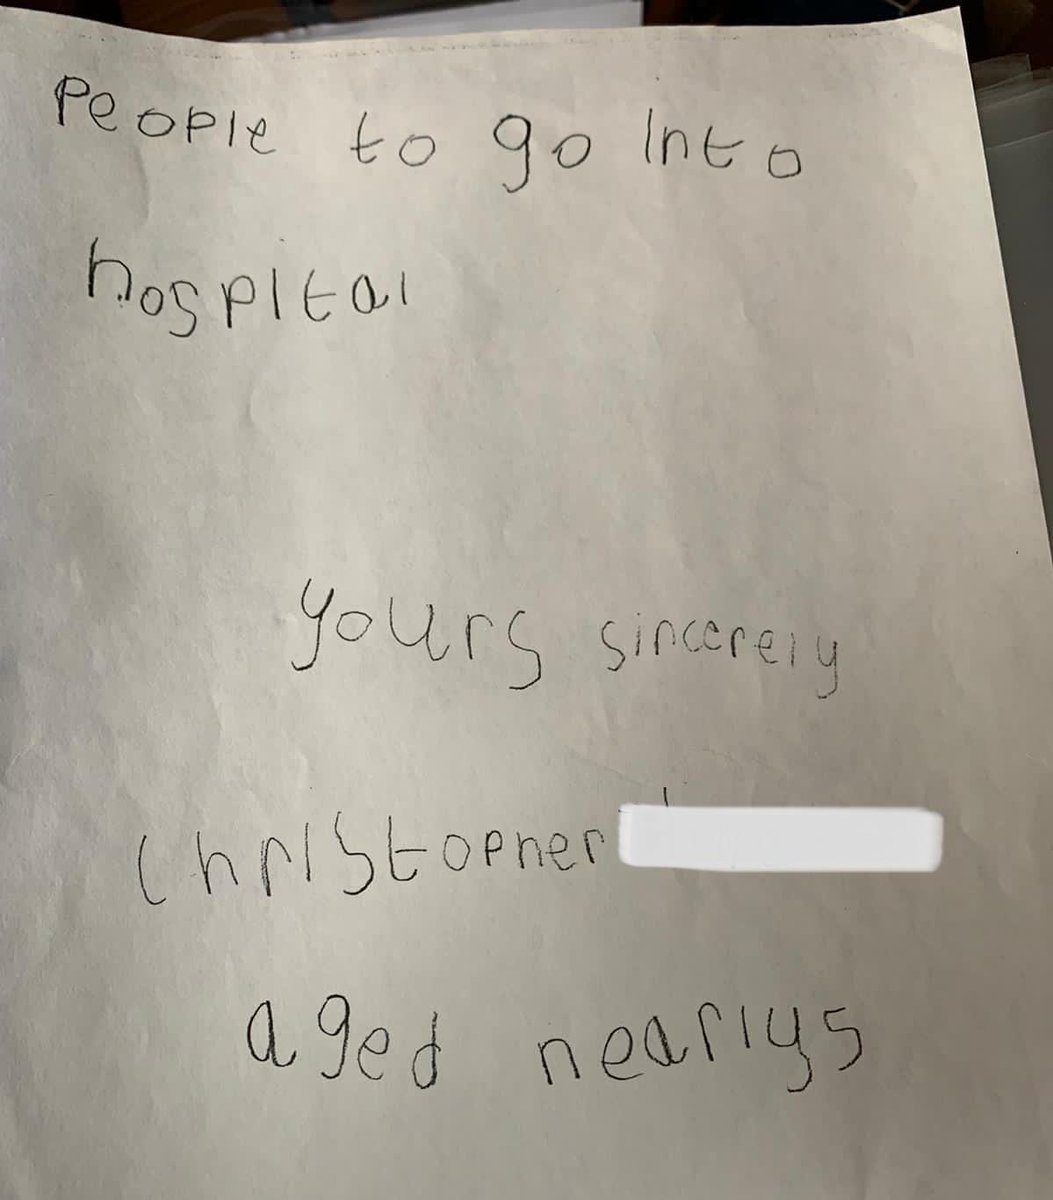 People to go Into
hospital
yours sincerely
Christopher
aged nearly 5